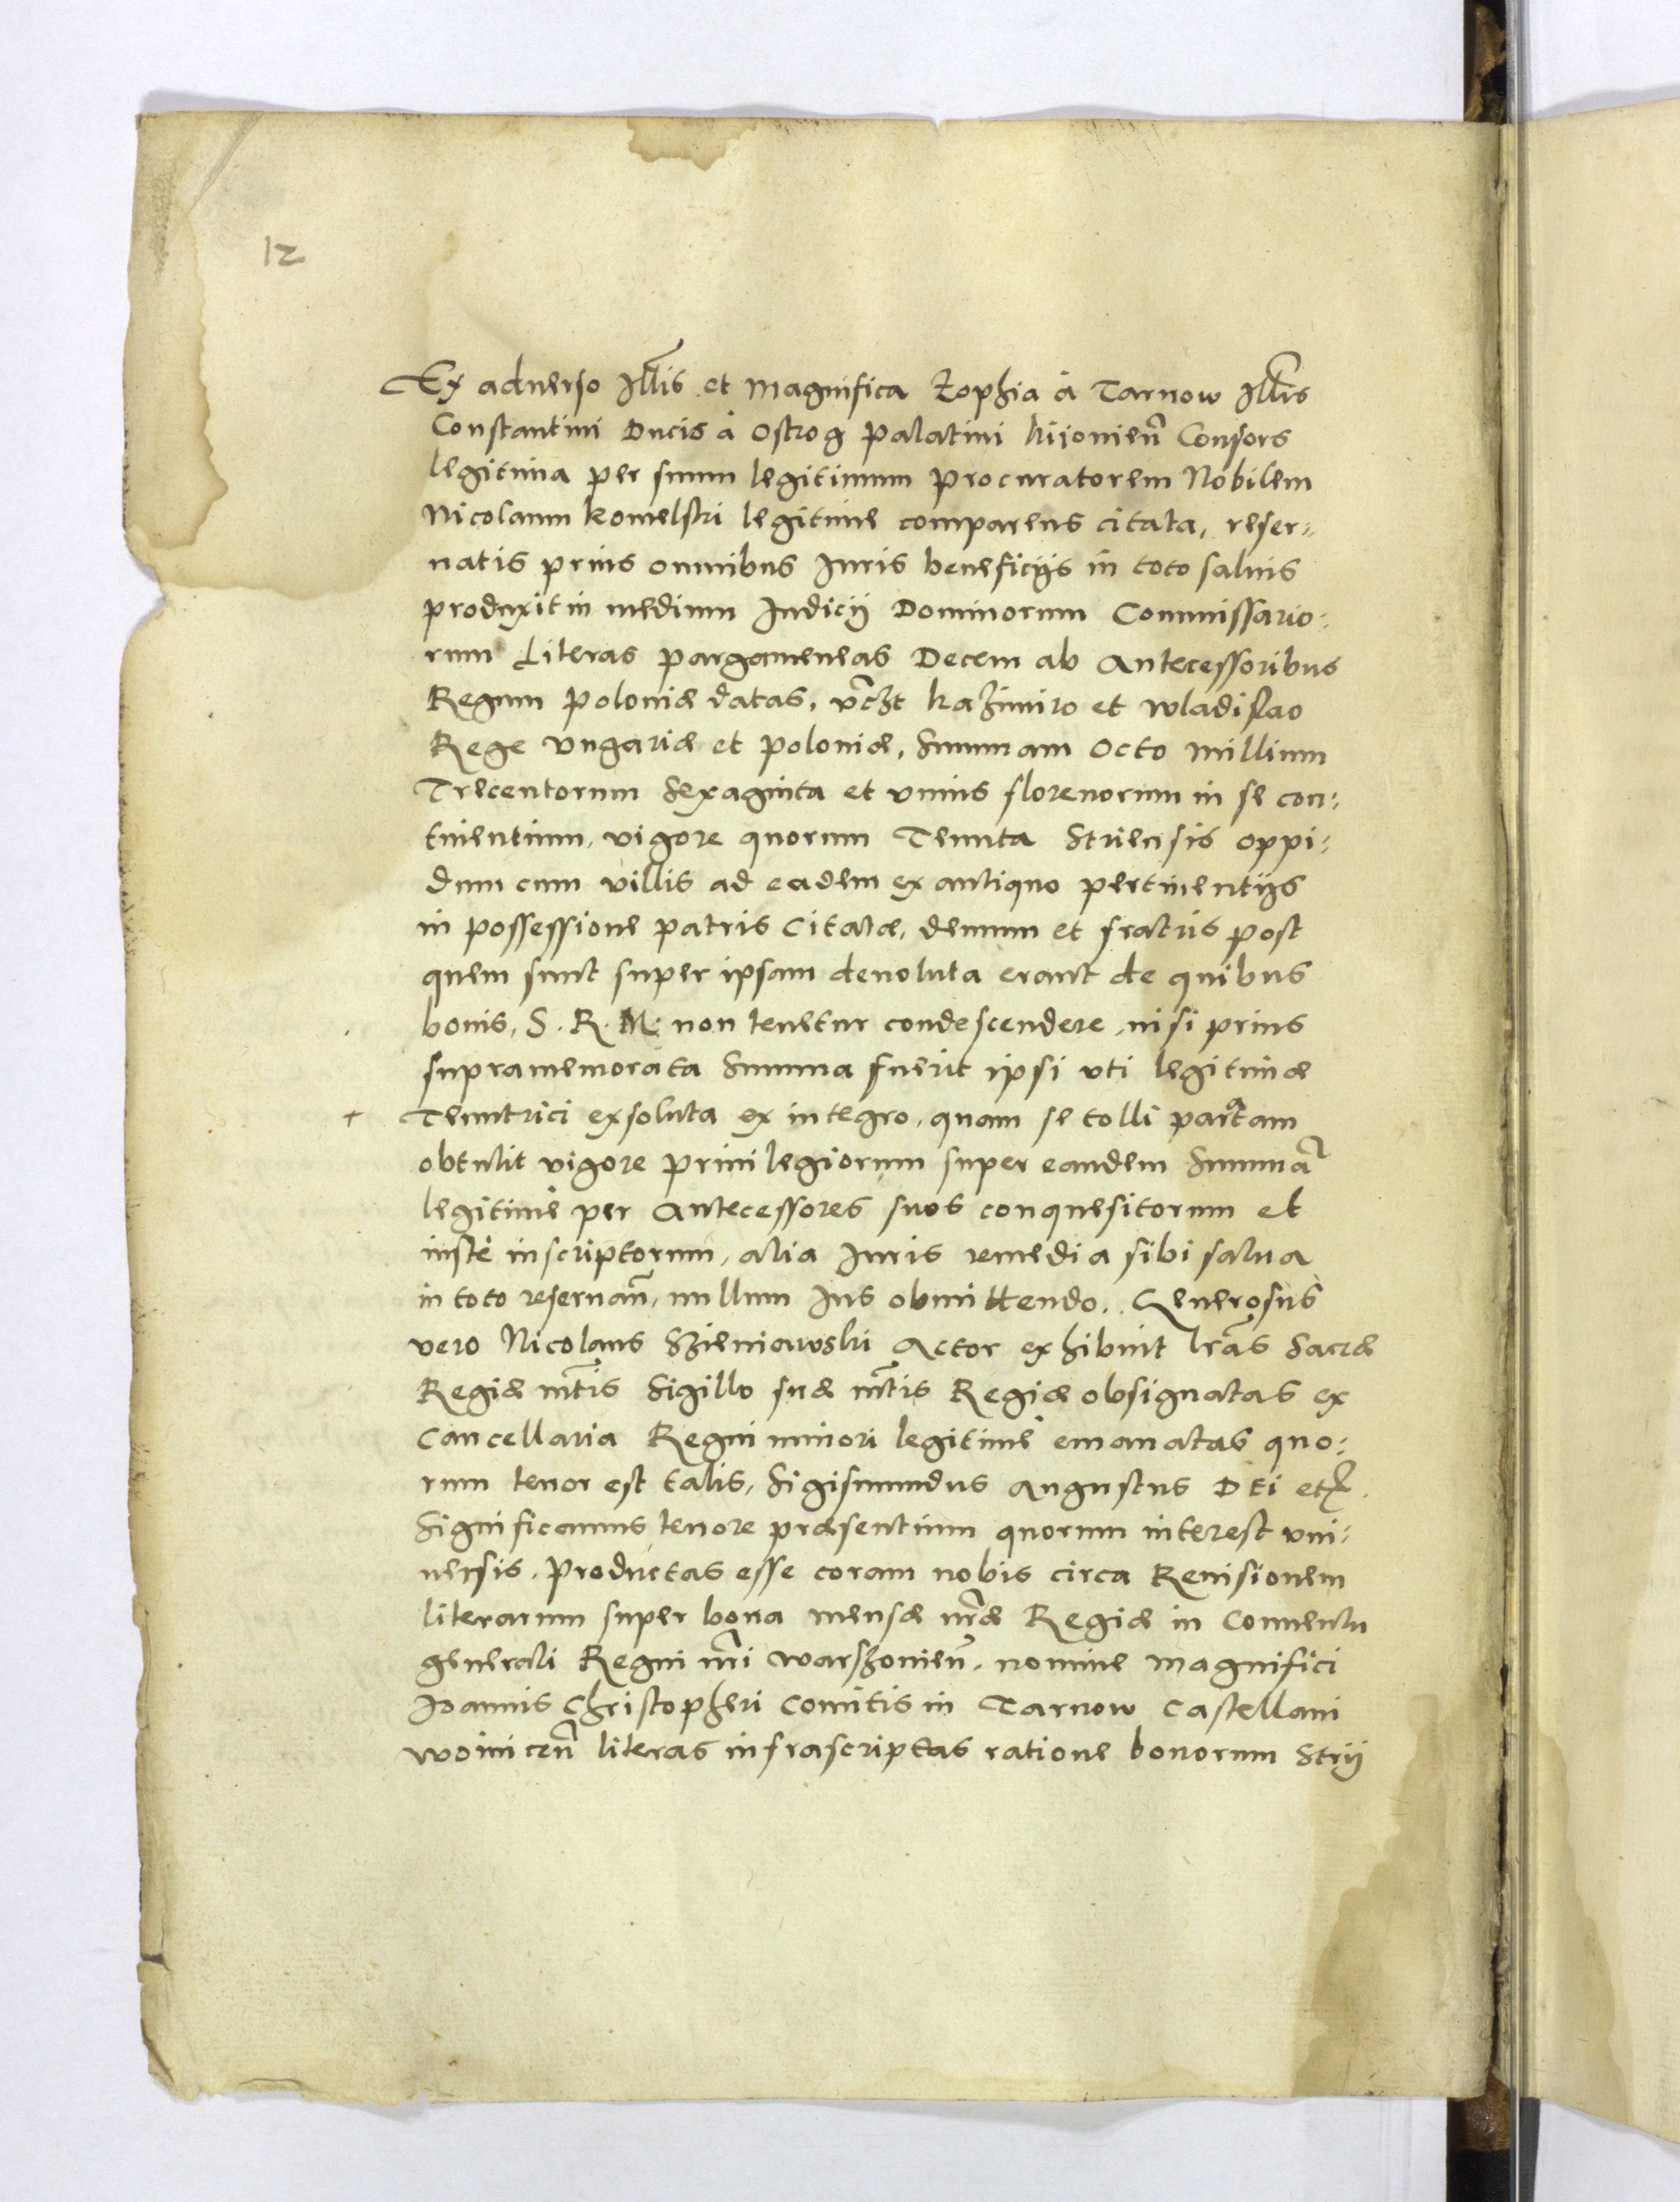 12
Ex aduerso Illris et Magnifica Zophia à Tarnow Illris
Constantini Ducis à Ostrog Palatini Kijouien̄ Consors
legitima per suum legitimum Procuratorem Nobilem
Nicolaum Komelski legitime comparens citata, reser:
uatis prius omnibus Iuris beneficijs in toto saluis
produxit in medium Iudicij Dominorum Commissario:
rum Literas pargameneas Decem ab Antecessoribus
Regum Poloniæ datas, vtz̄t Kazimiro et Wladislao
Rege Vngariæ et Poloniæ, Summam Octo millium
Trecentorum Sexaginta et vnius florenorum in se con:
tinentium, vigore quorum Tenuta Striensis oppi:
dum cum villis ad eadem ex antiquo pertinentijs
in possessione patris Citatæ, demum et fratris post
quem sunt super ipsam deuoluta erant de quibus
bonis, S. R. M. non tenetur condescendere, nisi prius
supramemorata Summa fuerit ipsi vti legitimæ
+ Tenutrici exsoluta ex integro, quam se tolli partam
obtulit vigore priuilegiorum super eandem Summā
legitimè per Antecessores suos conquesitorum et
iustè inscriptorum, alia Iuris remedia sibi salua
in toto reseruan̄, nullum Ius obmittendo. Generosus
vero Nicolaus Szieniawski Actor exhibuit lrās Sacræ
Regiæ mt̄is Sigillo suæ mt̄is Regiæ obsignatas ex
Cancellaria Regni minori legitimè emanatas quo:
rum tenor est talis, Sigismundus Augustus Dei etc.
Significamus tenore præsentium quorum interest vni:
uersis. Productas esse coram nobis circa Reuisionem
literarum super bona mensæ nrǣ Regiæ in Conuentu
generali Regni nr̄i Warszouien̄, nomine Magnifici
Ioannis Christopheri Comitis in Tarnow Castellani
Woinicen̄ literas infrascriptas ratione bonorum Strij